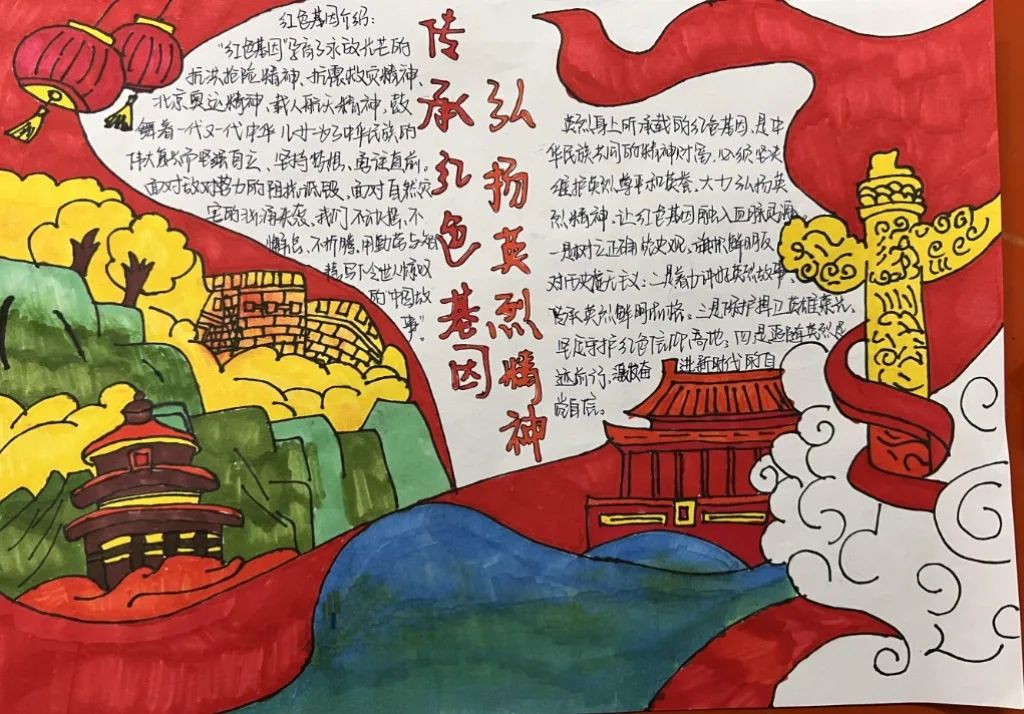 红色基因介绍:
"红色基因"孕育了永放光芒的
抗洪抢险精神、抗震救灾精神、
北京奥运精神、载人航天精神,鼓
舞着一代又一代中华儿女
伟大复兴而坚强自立、坚持梦想、勇往直前。
面对敌对势力的阻挠诋毁、面对自然灾
害的汹涌来袭,我们不
惧怕、不折腾,用勤劳与智
慧写下令世人惊叹
的中国故
事"
传承红色基因
弘扬英烈精神
英烈身上所承载的红色基因,是中
华民族共同的精神财富,必须坚决
维护英烈尊严和荣誉,大力弘扬英
烈精神,让红色基因融入血脉
一是树立正确的史观,旗帜鲜明反
对历史虚无主义;二是着力讲好英烈故事、
传承英烈鲜明品格。三是保护捍卫英雄荣光、
坚定守护红色信仰高地;四是追随英烈足
迹前行, 进新时代的自
尚自信。